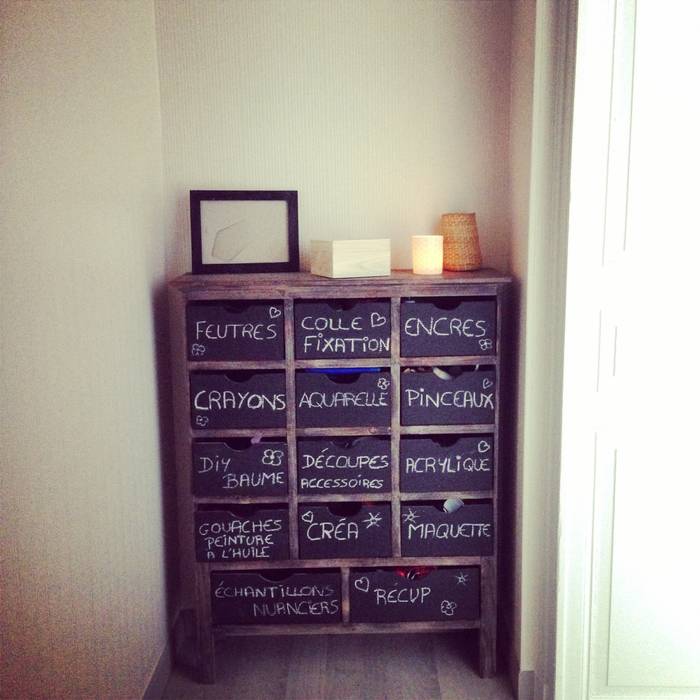 FEUTRES
COLLE
FIXATION
ENCRES
CRAYONS
AQUARELLE
PINCEAUX
DIY
BAUME
DÉCOUPES
ACCESSOIRES
ACRYLIQUE
GOUACHES
PEINTURE
A L'HUILE
CRÉA
MAQUETTE
ÉCHANTILLONS
NUANCIERS
RÉCUP